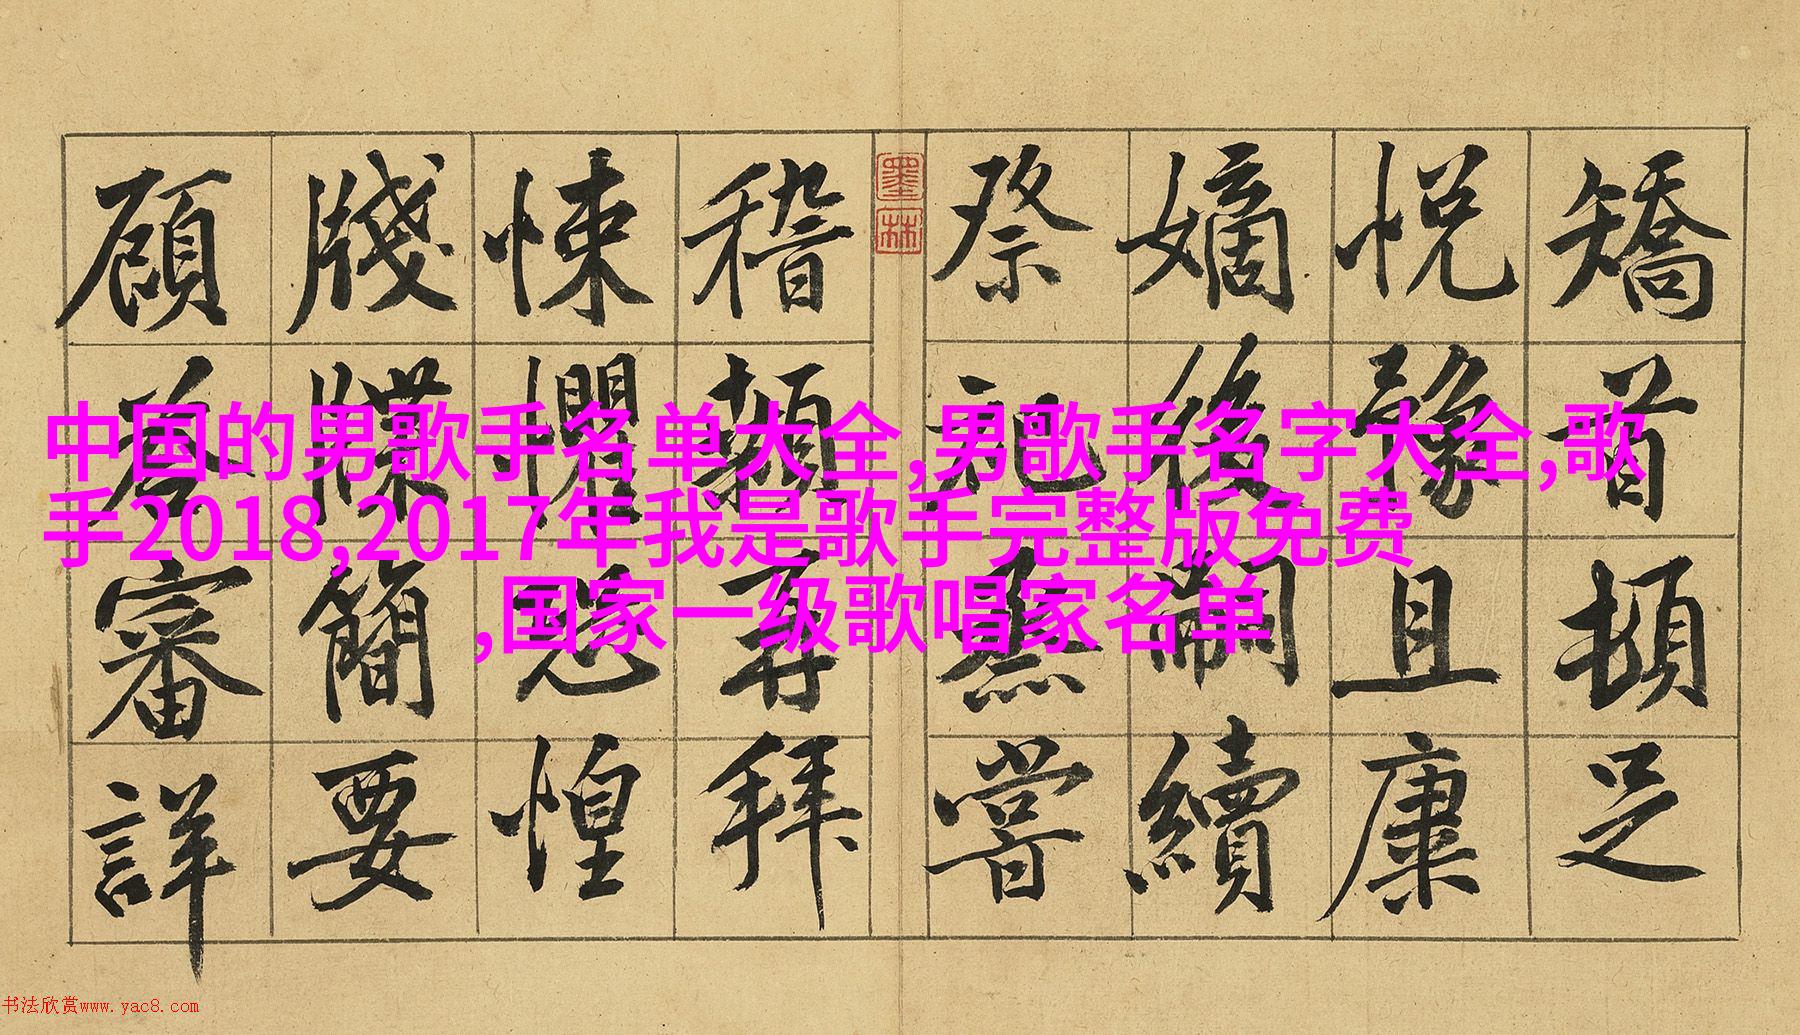 矯首頓足
悦豫且康
嫡後嗣續
祭祀烝嘗
墨林
稽顙再拜
悚懼恐惶
牋牒簡要
顧荅審詳
中国的男歌手名单大全,男歌手名字大全,歌
手2018,2017年我是歌手完整版免费
,国家一级歌唱家名单
书法欣赏www.yac8.com